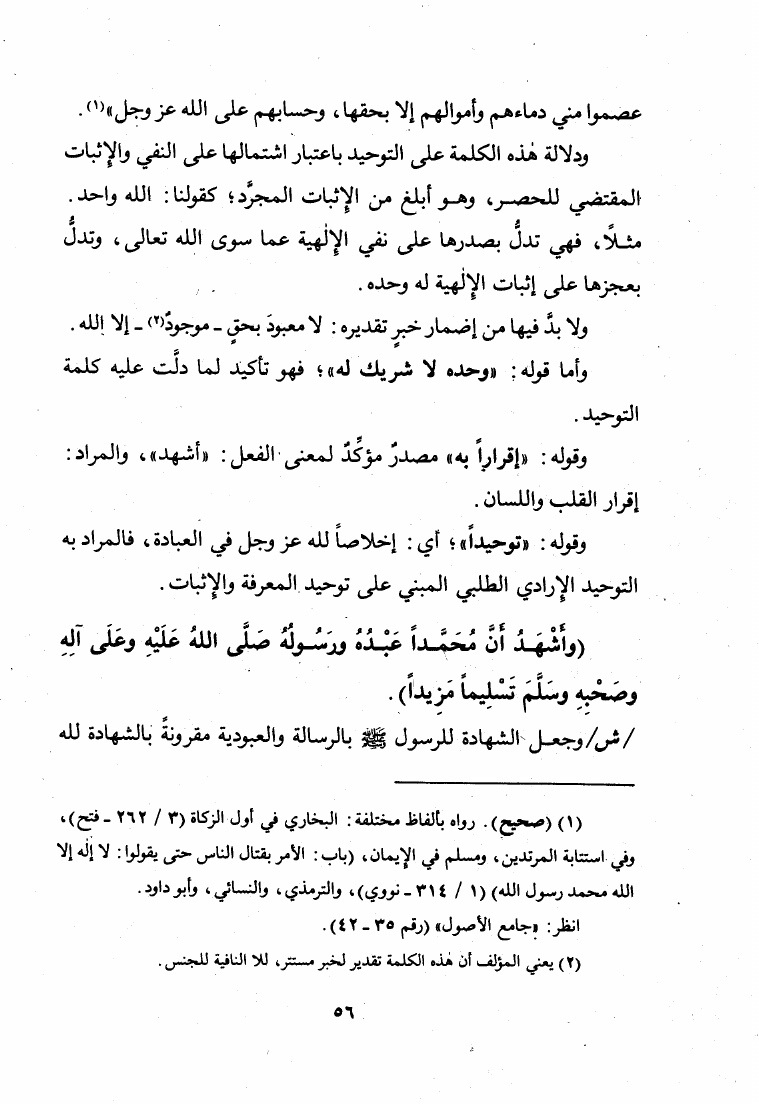 عصموا مني دماءهم وأموالهم إلا بحقها، وحسابهم على الله عز وجل»(١).
ودلالة هٰذه الكلمة على التوحيد باعتبار اشتمالها على النفي والإثبات
المقتضي للحصـر، وهـو أبلغ من الإثبات المجرَّد؛ كقولنا: الله واحد.
مثـلاً، فهي تدلُّ بصدرها على نفي الإلٰهية عما سوى الله تعالى، وتدلُّ
بعجزها على إثبات الإلٰهية له وحده.
ولا بدَّ فيها من إضمار خبرٍ تقديره: لا معبودَ بحقٍ ـ موجودٌ(٢) ـ إلا الله.
وأما قوله: «وحده لا شريك له»؛ فهو تأكيد لما دلَّت عليه كلمة
التوحيد.
وقوله: «إقراراً به» مصدرٌ مؤكِّدٌ لمعنى الفعل: «أشهد»، والمراد:
إقرار القلب واللسان.
وقوله: «توحيداً»؛ أي: إخلاصاً لله عز وجل في العبادة، فالمراد به
التوحيد الإرادي الطلبي المبني على توحيد المعرفة والإثبات.
(وأَشْهَـدُ أَنَّ مُحَمَّـداً عَبْـدُهُ ورَسُـولُهُ صَلَّى اللهُ عَلَيْهِ وعَلَى آلِهِ
وصَحْبِهِ وسَلَّمَ تَسْلِيماً مَزِيداً).
/ش/ وجعـل الشهادة للرسول ﷺ بالرسالة والعبودية مقرونةً بالشهادة لله
(١) (صحيح). رواه بألفاظ مختلفة: البخاري في أول الزكاة (٣ / ٢٦٢ ـ فتح)،
وفي استتابة المرتدين، ومسلم في الإيمان، (باب: الأمر بقتال الناس حتى يقولوا: لا إلٰه إلا
الله محمد رسول الله) (١ / ٣١٤ ـ نووي)، والترمذي، والنسائي، وأبو داود.
انظر: «جامع الأصول» (رقم ٣٥ ـ ٤٢).
(٢) يعني المؤلف أن هٰذه الكلمة تقدير لخبر مستتر، للا النافية للجنس.
٥٦